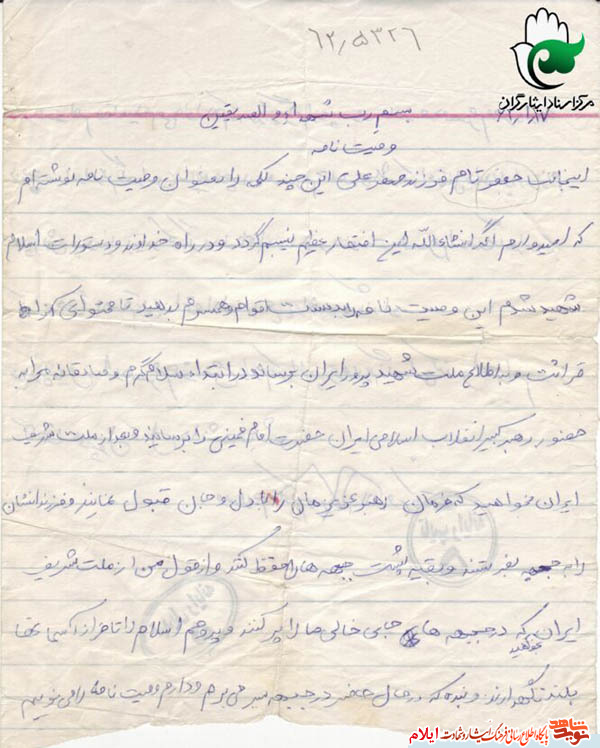 ۶۲٫۵۳۲۶
مرکز اسناد ایثارگران
بسم رب شهداء و الصدیقین
وصیت نامه
اینجانب جعفر فرزند صفرعلی این چند کلمه را بعنوان وصیت نامه نوشته ام
که امیدوارم اگر انشاءالله این افتخار عظیم نصیبم گردد و در راه خداوند و دستورات اسلام
شهید شدم این وصیت نامه را بدست اقوام و همسرم بدهید تا محتوای آنرا
قرائت و به اطلاع ملت شهید پرور ایران برساند در ابتداء سلام گرم و صادقانه مرا به
حضور رهبر کبیر انقلاب اسلامی ایران حضرت امام خمینی را برسانید و بعد از ملت شریف
ایران بخواهید که فرمان رهبر عزیزمان را با دل و جان قبول نمایند و فرزندانشان
را به جبهه بفرستند و بقیه پشت جبهه ها را حفظ کنند و از قول من از ملت شریف
ایران بخواهید که در جبهه ها جای خالی ما را پر کنند و پرچم اسلام را تا
بلند نگهدارند و بنده که در حال حاضر در جبهه بسر می برم و دارم وصیت نامه را می نویسم
نوید شاهد
پایگاه اطلاع رسانی فرهنگ ایثار و شهادت ایلام